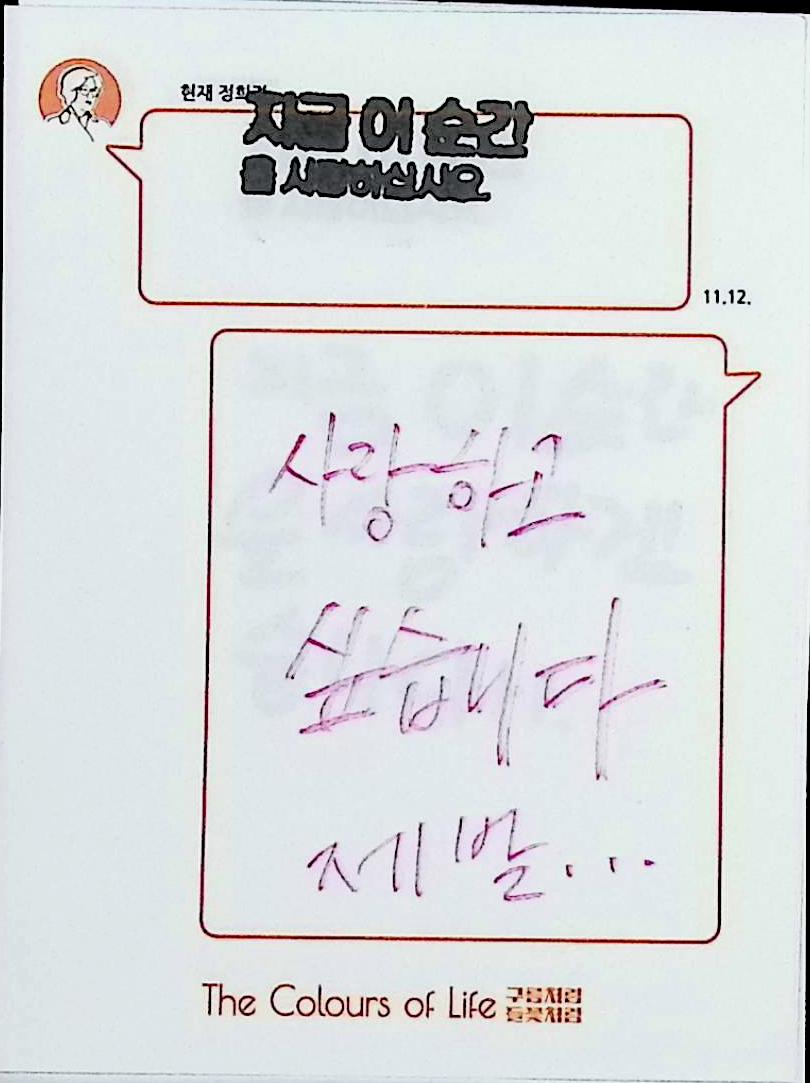 현재 정희
지금 이 순간
을 사랑하십시오
11.12.
사랑하고
싶습니다
제발...
The Colours of Life 구름처럼
들꽃처럼